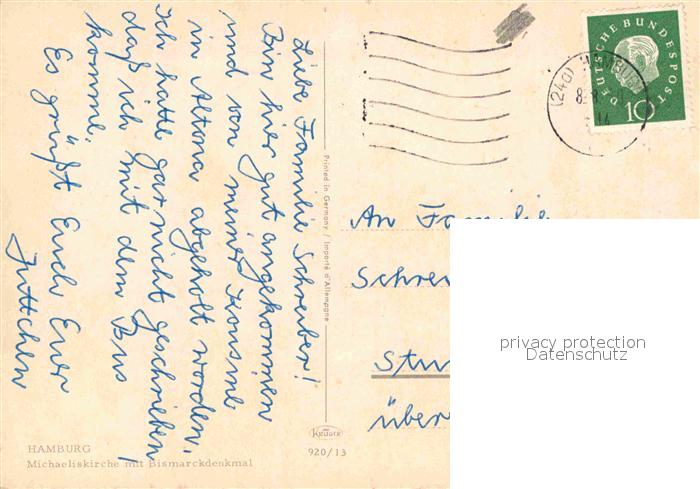 Liebe Familie Schreiber!
Bin hier gut angekommen
und von meiner Kousine
in Altona abgeholt worden.
Ich hatte gar nicht geschrieben,
daß ich mit dem Bus
komme.
Es grüßt Euch Euer
Juttchen
Printed in Germany / Importé d'Allemagne
KRÜGER
920/13
HAMBURG
Michaeliskirche mit Bismarckdenkmal
DEUTSCHE BUNDESPOST
10
(24a) HAMBURG
An Familie
Schrei
Stu
über
privacy protection
Datenschutz